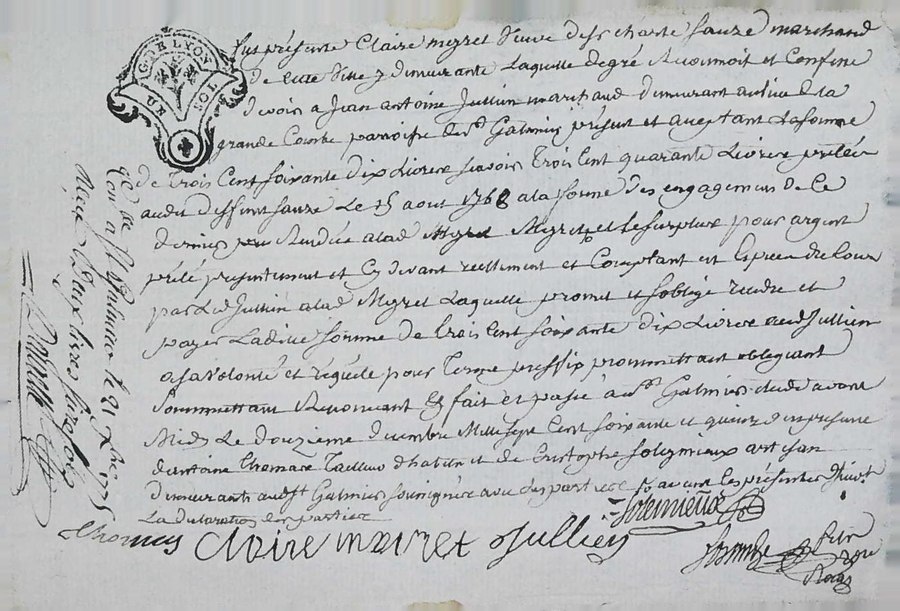 G. DE LYON
UN SOL
fut présente Claire meyret veuve de charle sauze marchand
de cette ville y demeurante Laquelle de gré Reconnoit et Confesse
devoir a Jean antoine Jullien marchand demeurant au lieu de la
grande Combe parroisse de st Galmier présent et aceptant La somme
de Trois Cent soixante dix Livres scavoir Trois Cent quarante Livres prétés
audit deffunt sauze Le 15 aout 1768 a la forme des engagement de ce
dernier Rendûe a lad Meyret et Le surplus pour argent
prété présentement et Cy devant reellement et Comptant en Espece de Cour
par Led Jullien a lad Meyret Laquelle promet et soblige rendre et
payer La ditte somme de Trois Cent soixante dix Livres aud Jullien
a sa volonté et réquête pour Terme préffix promettant obligeant
soumettant Renoncant fait et passé a st Galmier étude avant
Midy Le douzieme decembre Mille sept Cent soixante et quinze en presence
d'antoine Thomas Tailleur d'habits et de Cristophe solegnieux artisan
demeurants aud st Galmier soussignés avec les parties avant les présentes
La declaration des parties
solemieux
Thomas Claire mairet Jullien
Con a st Galmier le 21
Reçu